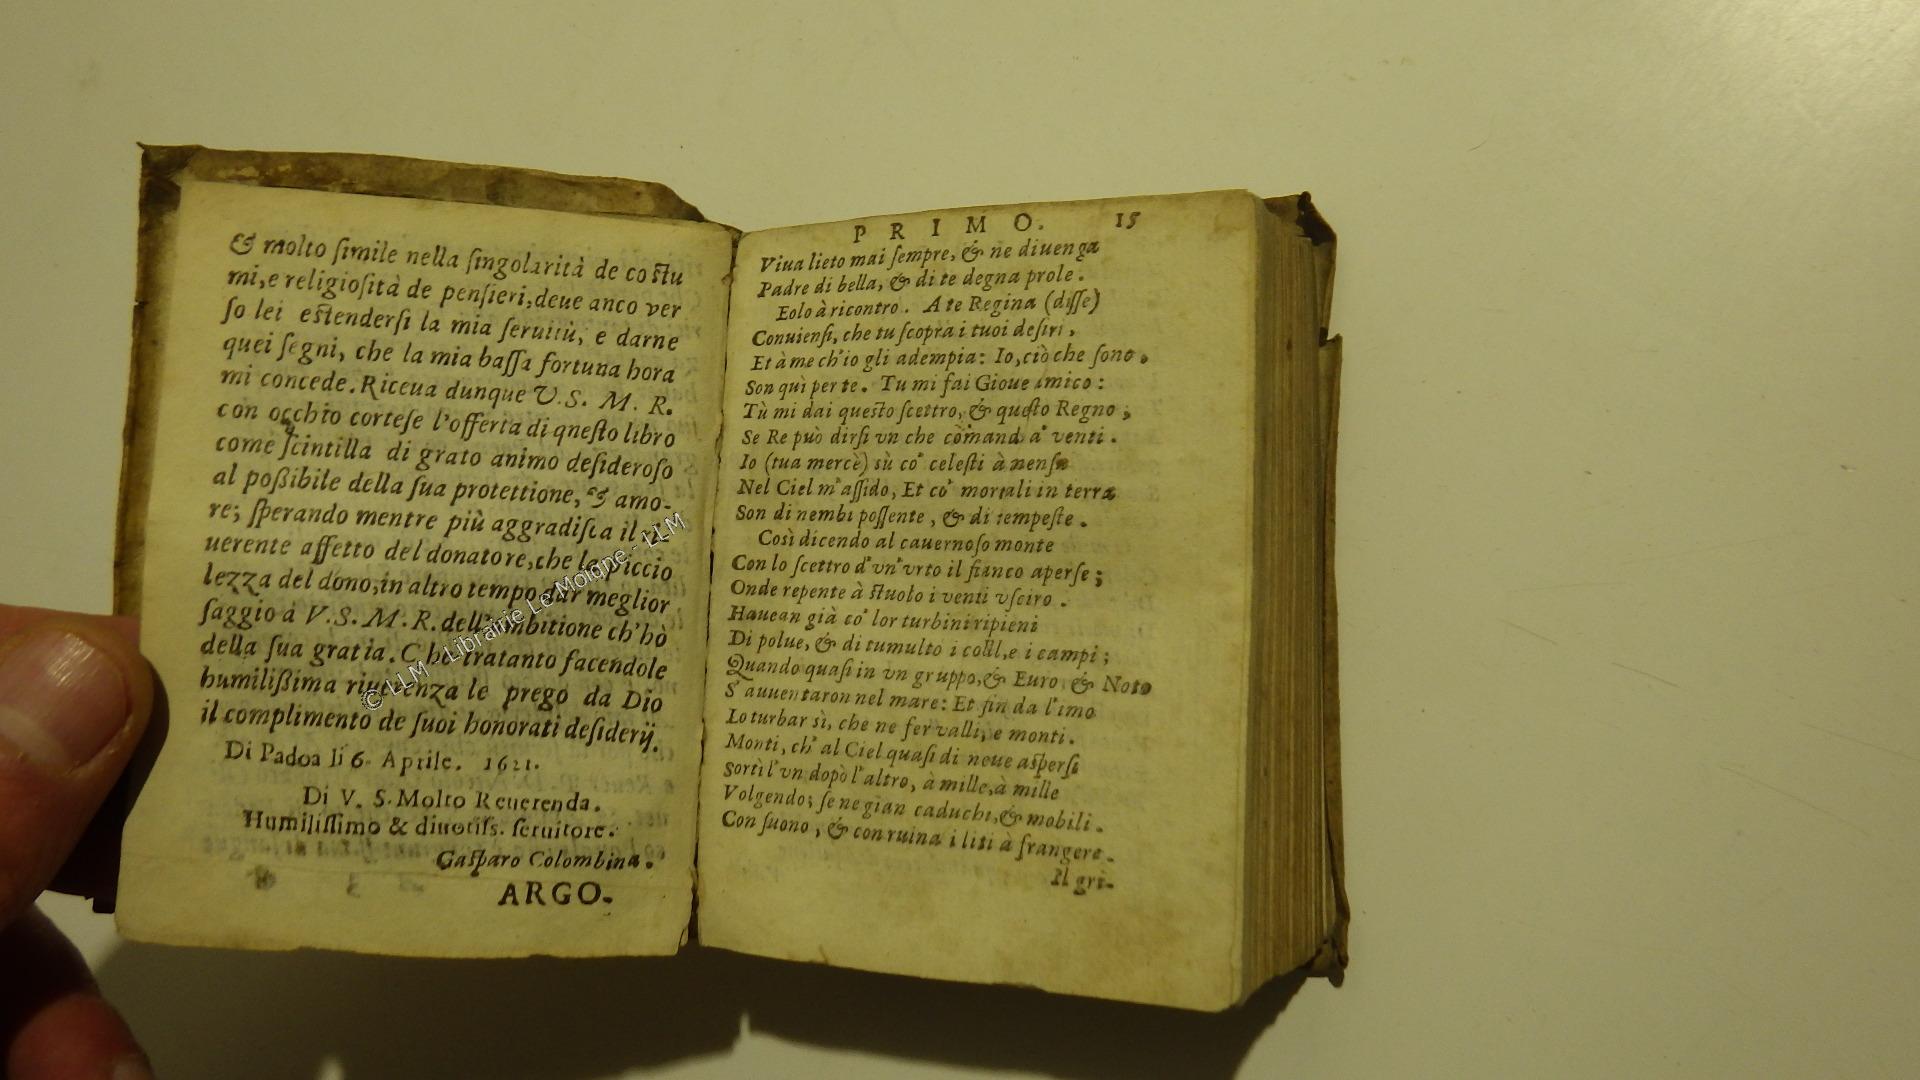 & molto ſimile nella ſingolarità de coſtu
mi,e religioſità de penſieri,deue anco ver
ſo lei eſtenderſi la mia ſeruitù, e darne
quei ſegni, che la mia baſſa fortuna hora
mi concede. Riceua dunque V. S. M. R.
con occhio corteſe l'offerta di queſto libro
come ſcintilla di grato animo deſideroſo
al poßibile della ſua protettione, & amo-
re; ſperando mentre più aggradiſca il
uerente affetto del donatore,che la piccio
lezza del dono,in altro tempo dar meglior
ſaggio à V. S. M. R. dell'ambitione ch'hò
della ſua gratia. Che tratanto facendole
humilißima riuerenza le prego da Dio
il complimento de ſuoi honorati deſiderij.
Di Padoa li 6. Aprile. 1621.
Di V. S. Molto Reuerenda.
Humiliſſimo & diuotiſs. ſeruitore.
Gaſparo Colombina.
ARGO.
© LLM - Librairie Le Moigne - LLM
PRIMO. 15
Viua lieto mai ſempre, & ne diuenga
Padre di bella, & di te degna prole.
Eolo à ricontro. A te Regina (diſſe)
Conuienſi, che tu ſcopra i tuoi deſiri,
Et à me ch'io gli adempia: Io,ciò che ſono.
Son quì per te. Tu mi fai Gioue amico:
Tù mi dai queſto ſcettro, & queſto Regno,
Se Re può dirſi vn che còmanda a' venti.
Io (tua mercè) sù co' celeſti à menſa
Nel Ciel m'aſſido, Et co' mortali in terra
Son di nembi poſſente, & di tempeſte.
Così dicendo al cauernoſo monte
Con lo ſcettro d'vn'vrto il fianco aperſe;
Onde repente à ſtuolo i venti vſciro.
Hauean già co' lor turbini ripieni
Di polue, & di tumulto i colli,e i campi;
Quando quaſi in vn gruppo,& Euro, & Noto
S'auuentaron nel mare: Et fin da l'imo
Lo turbar sì, che ne fer valli, e monti.
Monti, ch'al Ciel quaſi di neue aſperſi
Sorti l'vn dopò l'altro, à mille,à mille
Volgendo; ſe ne gian caduchi,& mobili.
Con ſuono, & con ruina i liti à frangere.
Il gri-